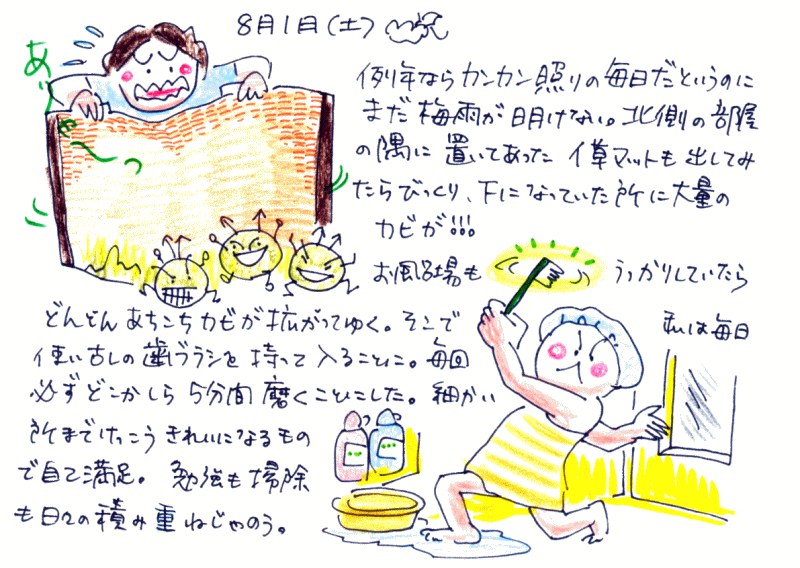 8月1日(土)
あ゛〜っ
例年ならカンカン照りの毎日だというのに
まだ梅雨が明けない。北側の部屋
の隅に置いてあったイ草マットも出してみ
たらびっくり、下になっていた所に大量の
カビが!!!
お風呂場も うっかりしていたら
どんどんあちこちカビが拡がってゆく。そこで
私は毎日
使い古しの歯ブラシを持って入ることに。毎回
必ずどこかしら5分間磨くことにした。細かい
所までけっこうきれいになるもの
で自己満足。勉強も掃除
も日々の積み重ねじゃのう。